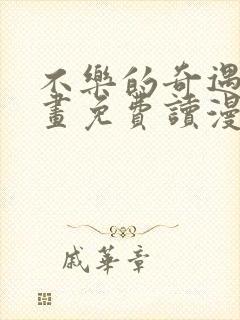 不樂的奇遇
畫免費讀漫
戚華章